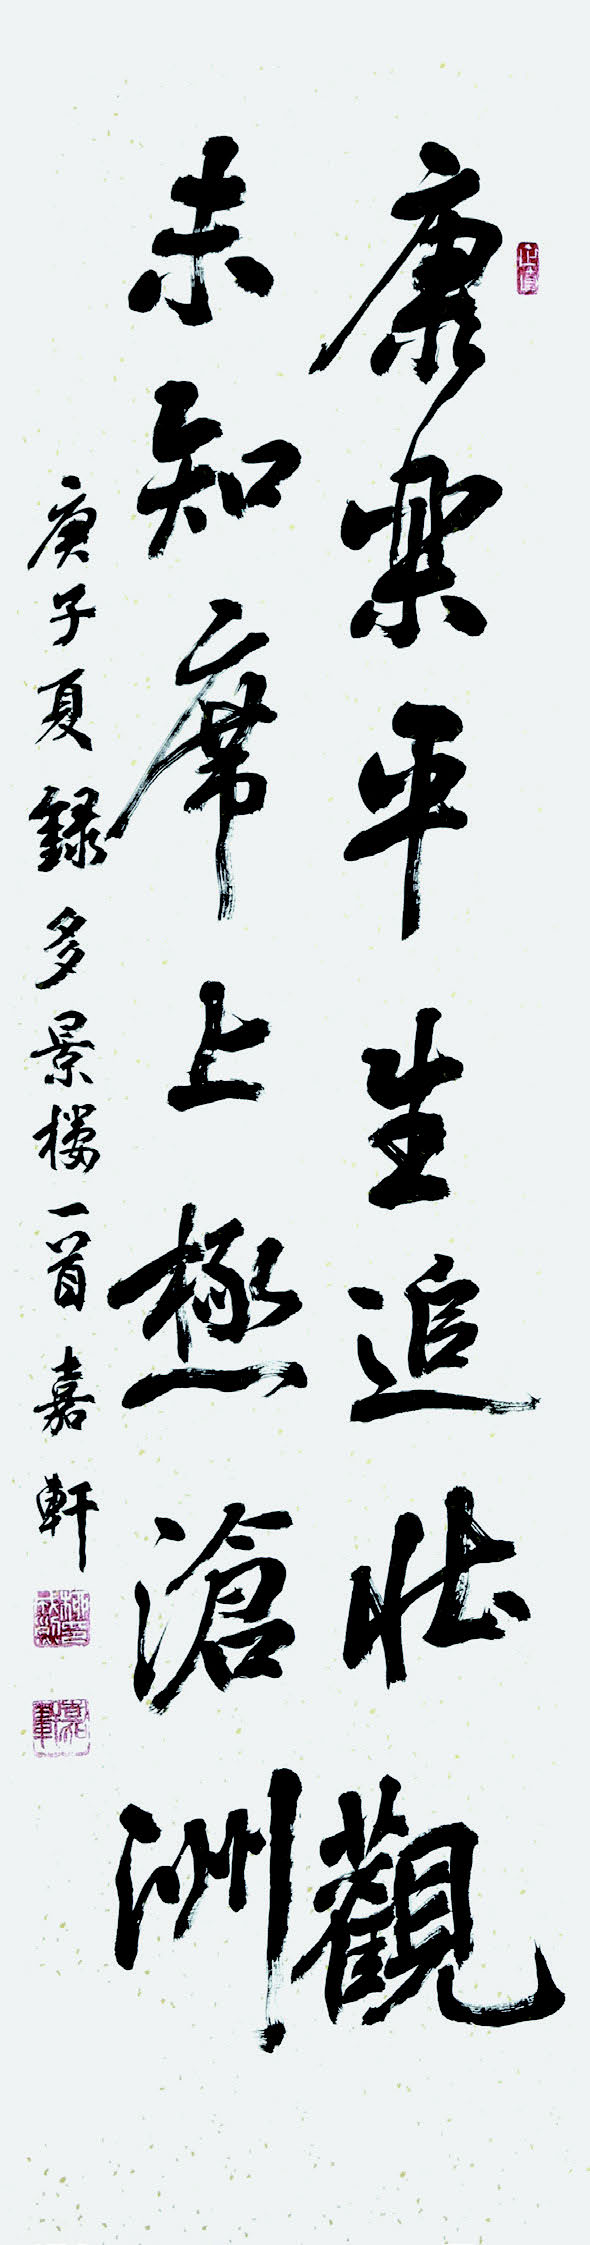 康樂平生追壯觀
未知席上極滄洲
庚子夏錄多景樓一首嘉軒